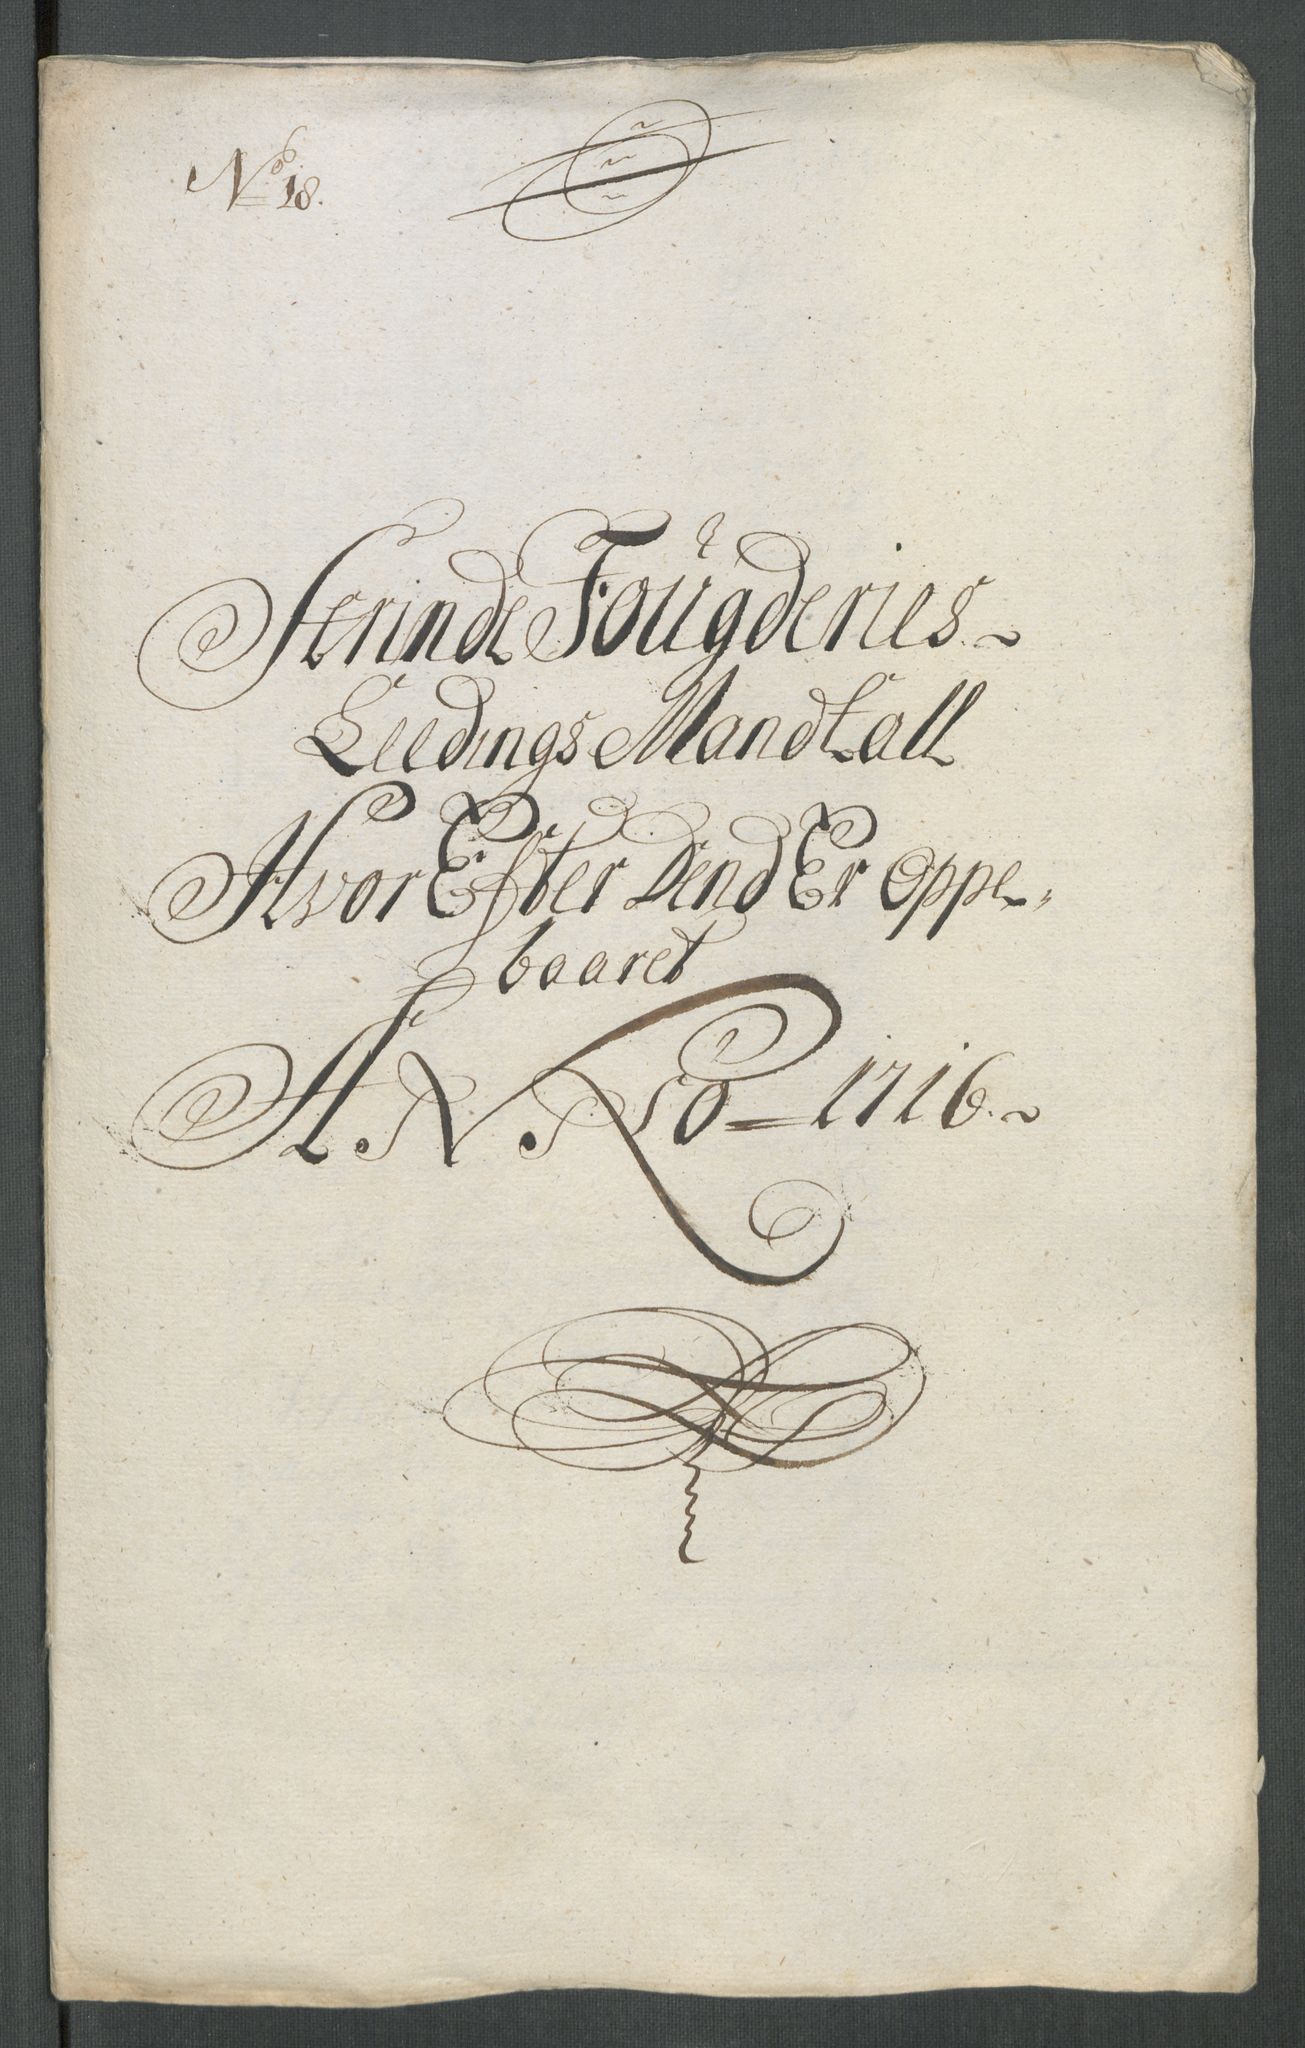 No 18.
Strinde Fougderies
Leedings Mandtall
Hvor Efter Dend Er Oppe,
baaret
ANNO 1716.